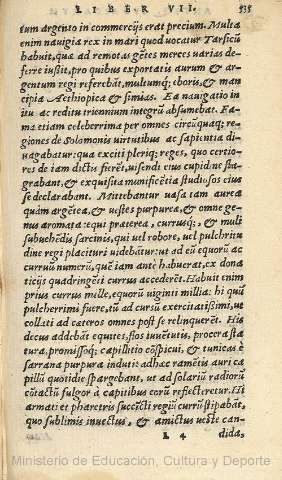 LIBER VII. 535
tum argento in commercijs erat precium. Multa
enim nauigia rex in mari quod uocatur Tarsicū
habuit, quæ ad remotas gētes merces uarias de-
ferre iußit, pro quibus exportatis aurum & ar-
gentum regi referebāt, multumq; eboris, & man
cipia Aethiopica & simias. Ea nauigatio in
itu ac reditu triennium integrū absumebat. Fa-
ma etiam celeberrima per omnes circūquaq; re-
giones de Solomonis uirtutibus ac sapientia di-
uagabatur: qua exciti pleriq; reges, quo certio-
res de iam dictis fierēt, uisendi eius cupidine fla-
grabant, & exquisita munificētia studiosos eius
se declarabant. Mittebantur uasa tam aurea
quàm argētea, & uestes purpureæ, & omne ge-
nus aromata: equi præterea, currusq;, & muli
subuehēdis sarcinis, qui uel robore, uel pulchritu
dine regi placituri uidebātur: ut ad eū equorū ac
curruū numerū, quē iam antè habuerat, ex dona
ticijs quadringēti currus accederēt. Habuit enim
prius currus mille, equorū uiginti millia: hi quū
pulcherrimi fuere, tū ad cursū exercitatißimi, ut
collati ad cæteros omnes post se relinquerēt. His
decus addebāt equites, flos iuuētutis, procera sta
tura, promissoq; capillitio cōspicui, & tunicas è
sarrana purpura induti: adhæc ramētis auri ca
pillū quotidie spargebant, ut ad solariū radiorū
cōtactū fulgor à capitibus eorū reflecteretur. Hi
armati et pharetris succīcti regiū currū stipabāt,
quo sublimis inuectus, & amictus ueste can-
L 4 dida,
Ministerio de Educación, Cultura y Deporte